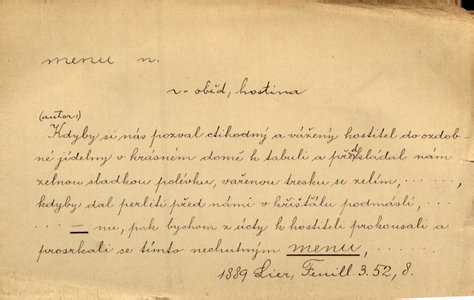 menu n.
~ oběd, hostina
(autor:)
Kdyby si nás pozval ctihodný a vážený hostitel do ozdob-
né jídelny v krásném domě k tabuli a předkládal nám
zelnou sladkou polévku, vařenou tresku se zelím, ......,
kdyby dal perliti před námi v křišťálu podmáslí, .....
... — nu, pak bychom z úcty k hostiteli prokousali a
prosrkali se tímto nechutným menu, .......
1889 Lier, Feuill. 3. 52, 8.